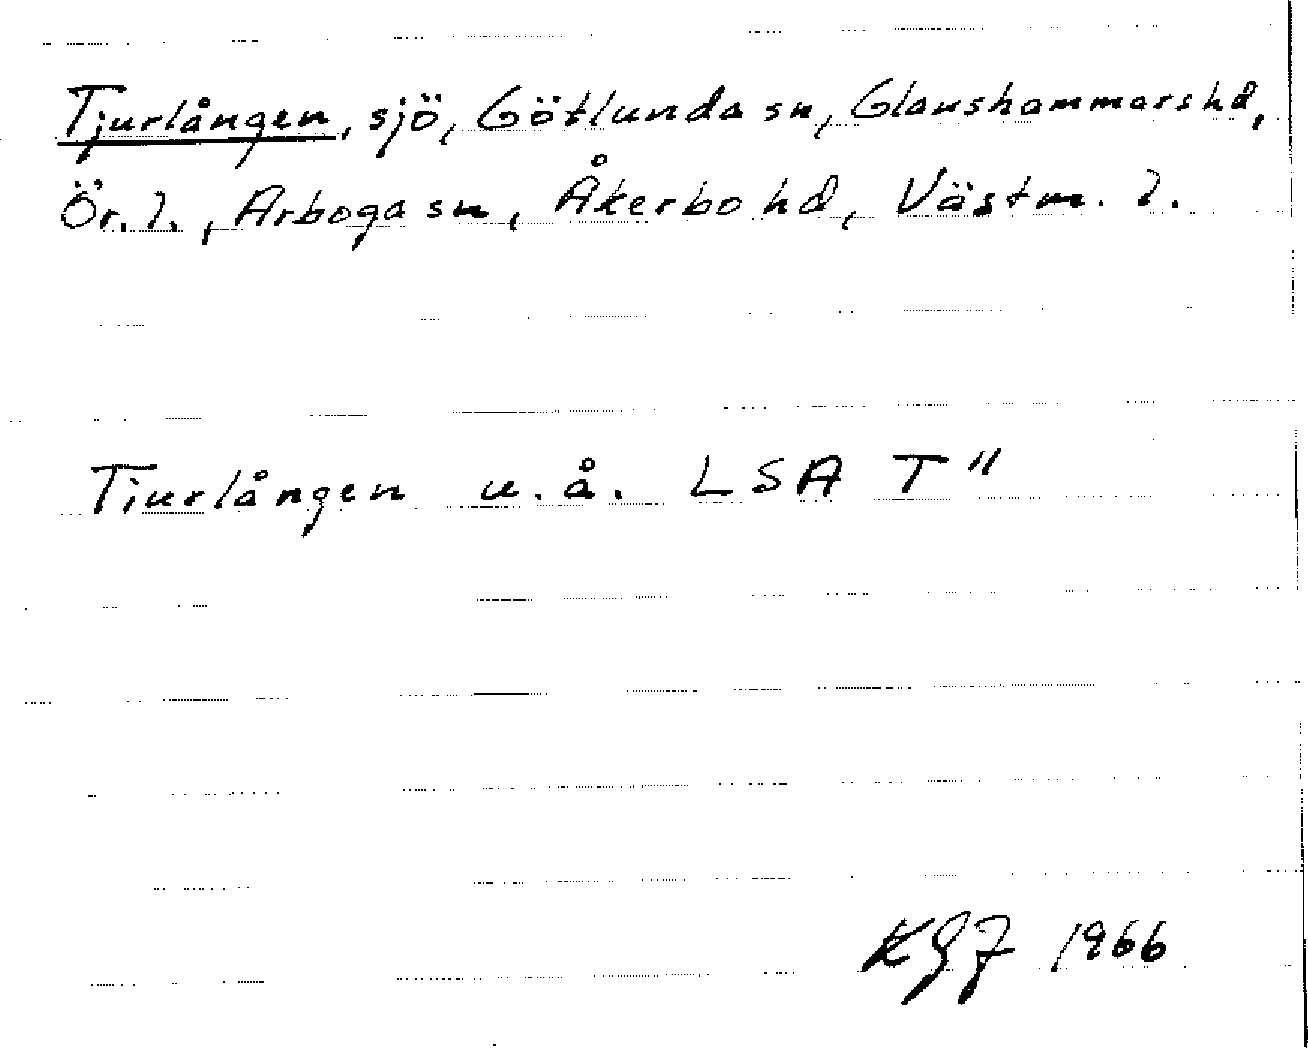 Tjurlången, sjö, Götlunda sn, Glanshammars hd,
Ör. l., Arboga sn, Åkerbo hd, Västm. l.
Tjurlången u. å. LSA T"
KGJ 1966